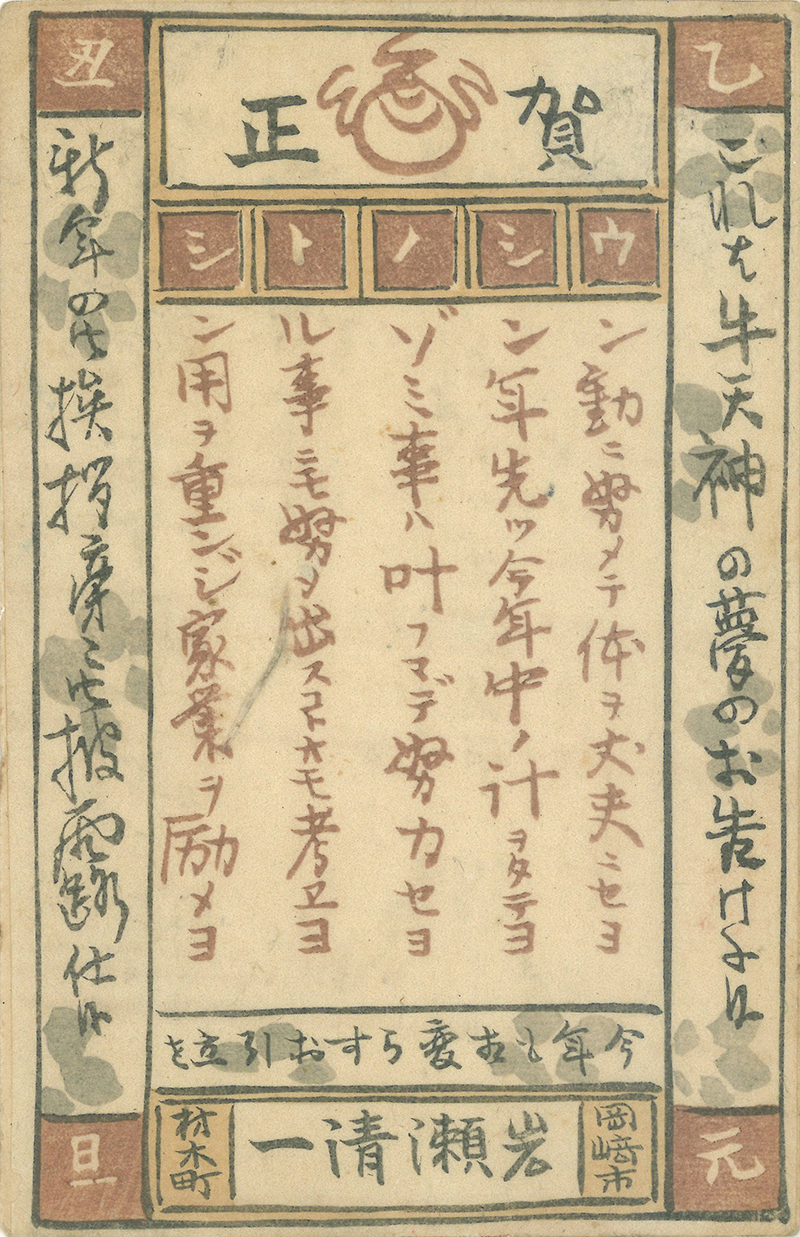 賀正
乙
丑
これは牛天神の夢のお告け候
ウシノトシ
ン動ニ努メテ体ヲ丈夫ニセヨ
ン年先ツ今年中ノ計ヲタテヨ
ゾミ事ハ叶フマデ努力セヨ
ル事ニモ努メ出スコトオモ考ヱヨ
ン用ヲ重ンジ家業ヲ励メヨ
新年の御挨拶旁々御披露仕候
今年も相変らすお引立を
元
岡崎市
岩瀬清一
材木町
旦